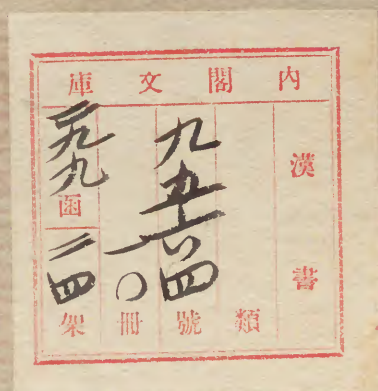 內閣文庫
漢書類
九五六四號
一〇冊
二九九函
二四架